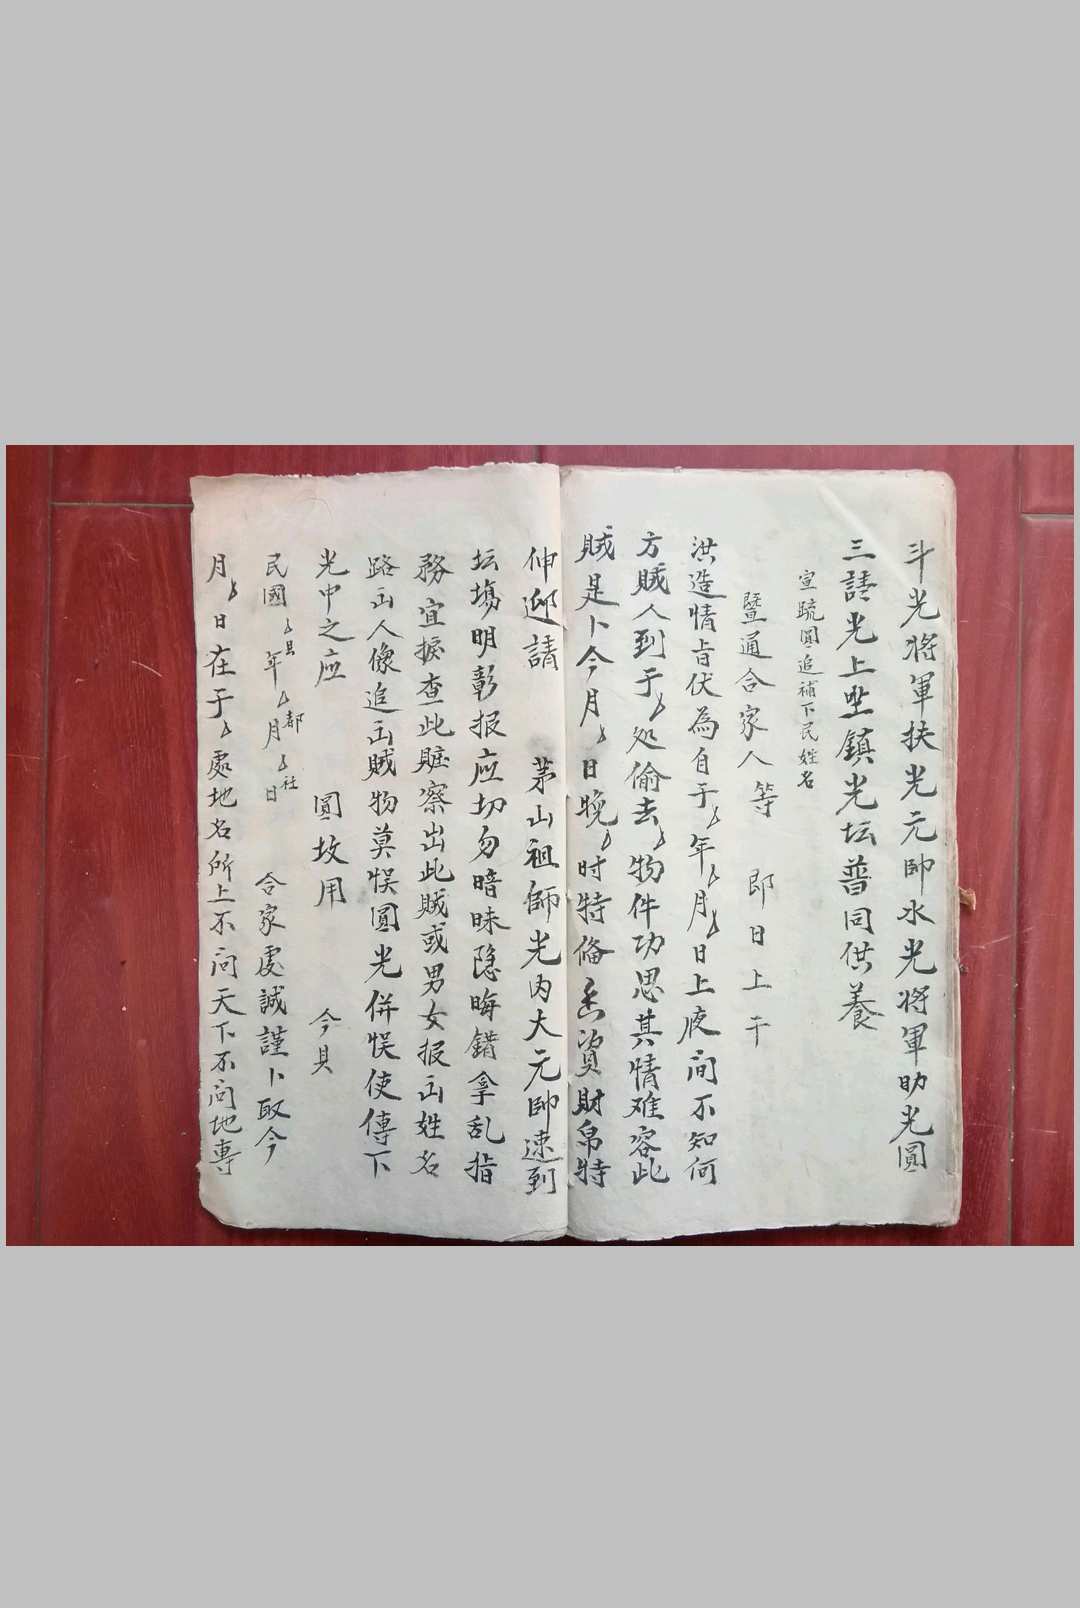 斗光將軍扶光元帥水光將軍助光圓
三請光上坐鎮光坛普同供養
宣疏圓追補下民姓名
暨通合家人等 即日上干
洪造情旨伏為自于〻年〻月〻日上夜间不知何
方贼人到于〻处偷去〻物件功思其情难容此
贼是卜今月〻日晚〻时特俻香資財帛特
伸迎請 茅山祖師光内大元帥速到
坛塲明彰报应切勿暗昧隐晦錯拿乱指
務宜搜查此賍察出此贼或男女报出姓名
路出人像追出贼物莫悮圓光併悮使傳下
光中之应 圓坟用 今具
民國〻县年〻都月〻社日 合家處誠謹卜取今
月〻日在于〻處地名所上不问天下不问地專